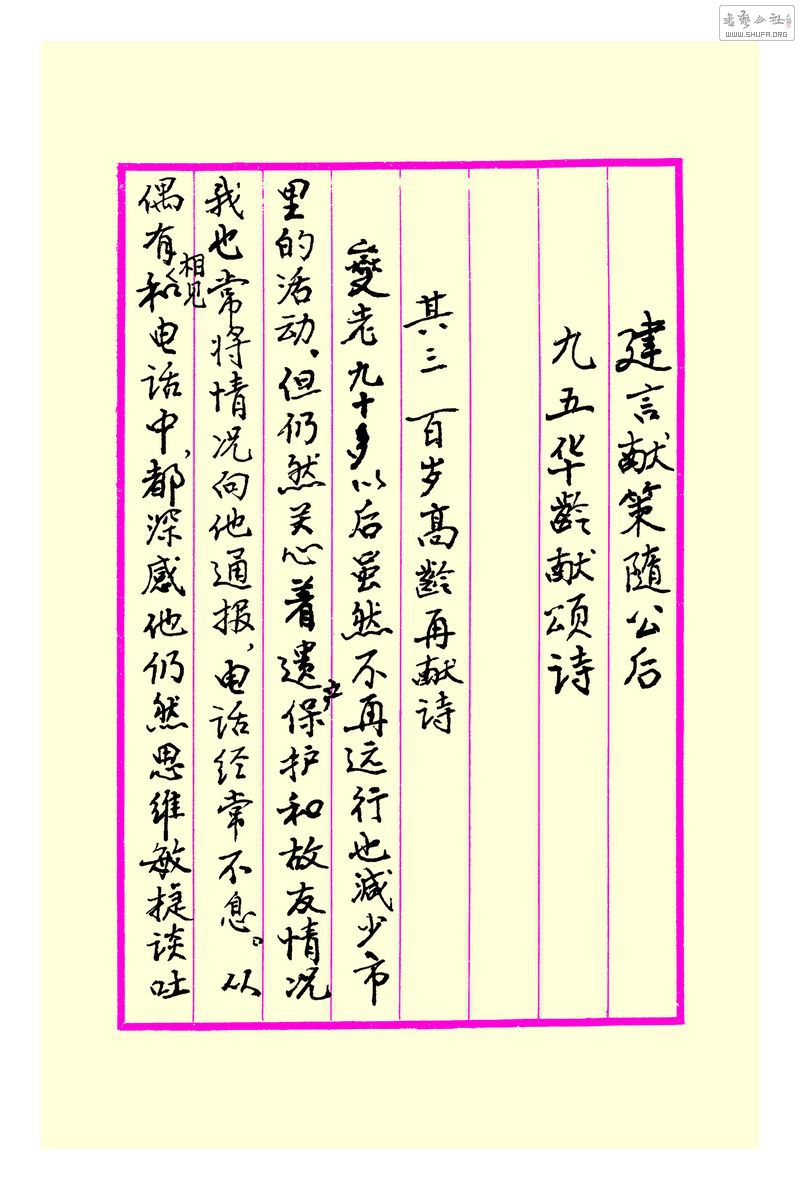 建言献策随公后
九五华龄献颂诗
其三 百岁高龄再献诗
燮老九十多以后虽然不再远行也减少市
里的活动，但仍然关心着遗产保护和故友情况
我也常将情况向他通报，电话经常不息。从
偶有相见和电话中，都深感他仍然思维敏捷谈吐
书艺公社
WWW.SHUFA.ORG